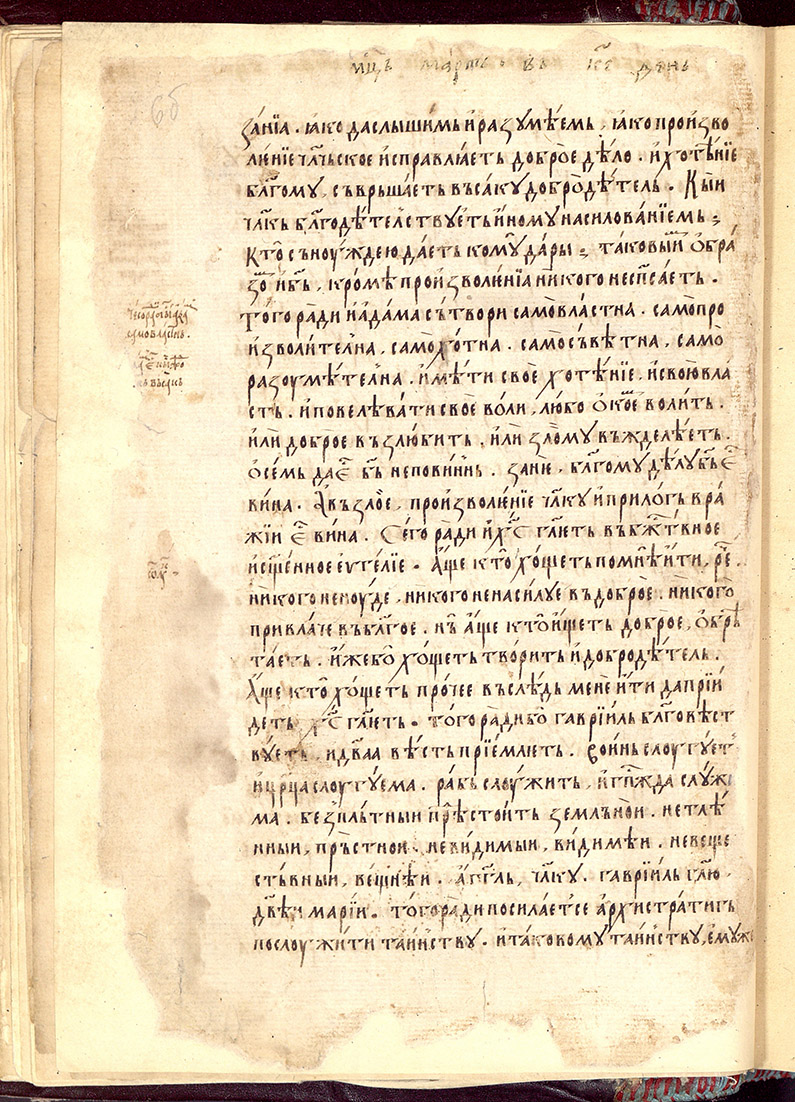 мц҃ъ мартъ въ к҃е дн҃ь
66
за́нїа . ꙗко да слы́шимь и҆ разꙋмѣ́емь , ꙗко прои́зво
лѥ́нїе чл҃чьское и҆справлꙗ́еть до́брое дѣ́ло . и҆ хотѣ́нїе
бл҃гому , съврьша́еть въсакꙋ добродѣ́тель . Кы́и
чл҃къ бл҃годѣ́телствꙋеть и҆номꙋ насилова́нїемь ;
Кто̀ съ ноу́ждею да́еть комꙋ̀ да́ры ; таковы́и ѡ҆бра́
зѡ и҆ бъ҃ , кро́мѣ произволе́нїа никого не сп҃са́еть .
того ра́ди и҆ а҆да́ма сътвори само́властна . само́про
и҆зволи́телна , самохо́тна . самосъвѣ́тна , само̀
разоумѣ́телна . и҆мѣ́ти своѐ хотѣ́нїе , и҆ свою̀ вла
сть . и҆ повелѣва́ти своѐ во́ли , лю́бо во́лить .
и҆лѝ до́брое възлю́бить , и҆лѝ зло́мꙋ въжделѣ́еть .
ѡ҆ семь да е҆҃ бъ҃ непови́ннь . занѥ̀ , бл҃гомꙋ дѣ́лꙋ бъ҃ е҆҃
вина̀ . А҆ въ зло̀е , произволѥ́нїе чл҃кꙋ и҆ прило́гь вра́
жїи е҆҃ вина̀ . Сего̀ ра́ди и҆ х҃с гл҃ѥть въ бж҃твное
и҆ сщ҃е́нное е҆ѵг҃елїе . А҆́ще кто̀ хо́щеть по мнѣ̀ и҆тѝ , ре҃ .
никого не ноу́де , никого не наси́лꙋе въ до́брое . никого̀
привла́че въ бл҃гое . нъ̀ а҆́ще кто̀ и҆́щеть до́брое , ѡ҆брѣ́
таеть . и҆́же бо̀ хо́щеть твори́ть и҆ добродѣ́тель .
А҆́ще кто̀ хо́щеть про́чее въслѣ́дь менѐ и҆тѝ да прїи́
деть х҃с гл҃ѥть . то́го ра́ди бо̀ гаврїи́ль бл҃говѣст
вꙋ́еть , и҆ дв҃аа вѣ́сть прїѥ́млѥть . во́инь слоугꙋ́ет
и҆ цр҃ца слоугꙋ́ема . ра́бь слоу́жить , и҆ гп҃жда слꙋ́ж
ма . безпль́тныи прѣ́стоить земльно́и . нетлѣ́
нныи , пръ́стнои . неви́димыи , ви́димѣи . невеще
стьвныи , ве́щнѣи . а҆́гг҃ль , чл҃кꙋ . гаврїи́ль гл҃ю
дв҃ѣи марїи . то́го ра́ди посила́етсе а҆рхистрати́гь
послоужи́ти та́инствꙋ . и҆ таково́мꙋ та́инствꙋ , е҆мꙋж